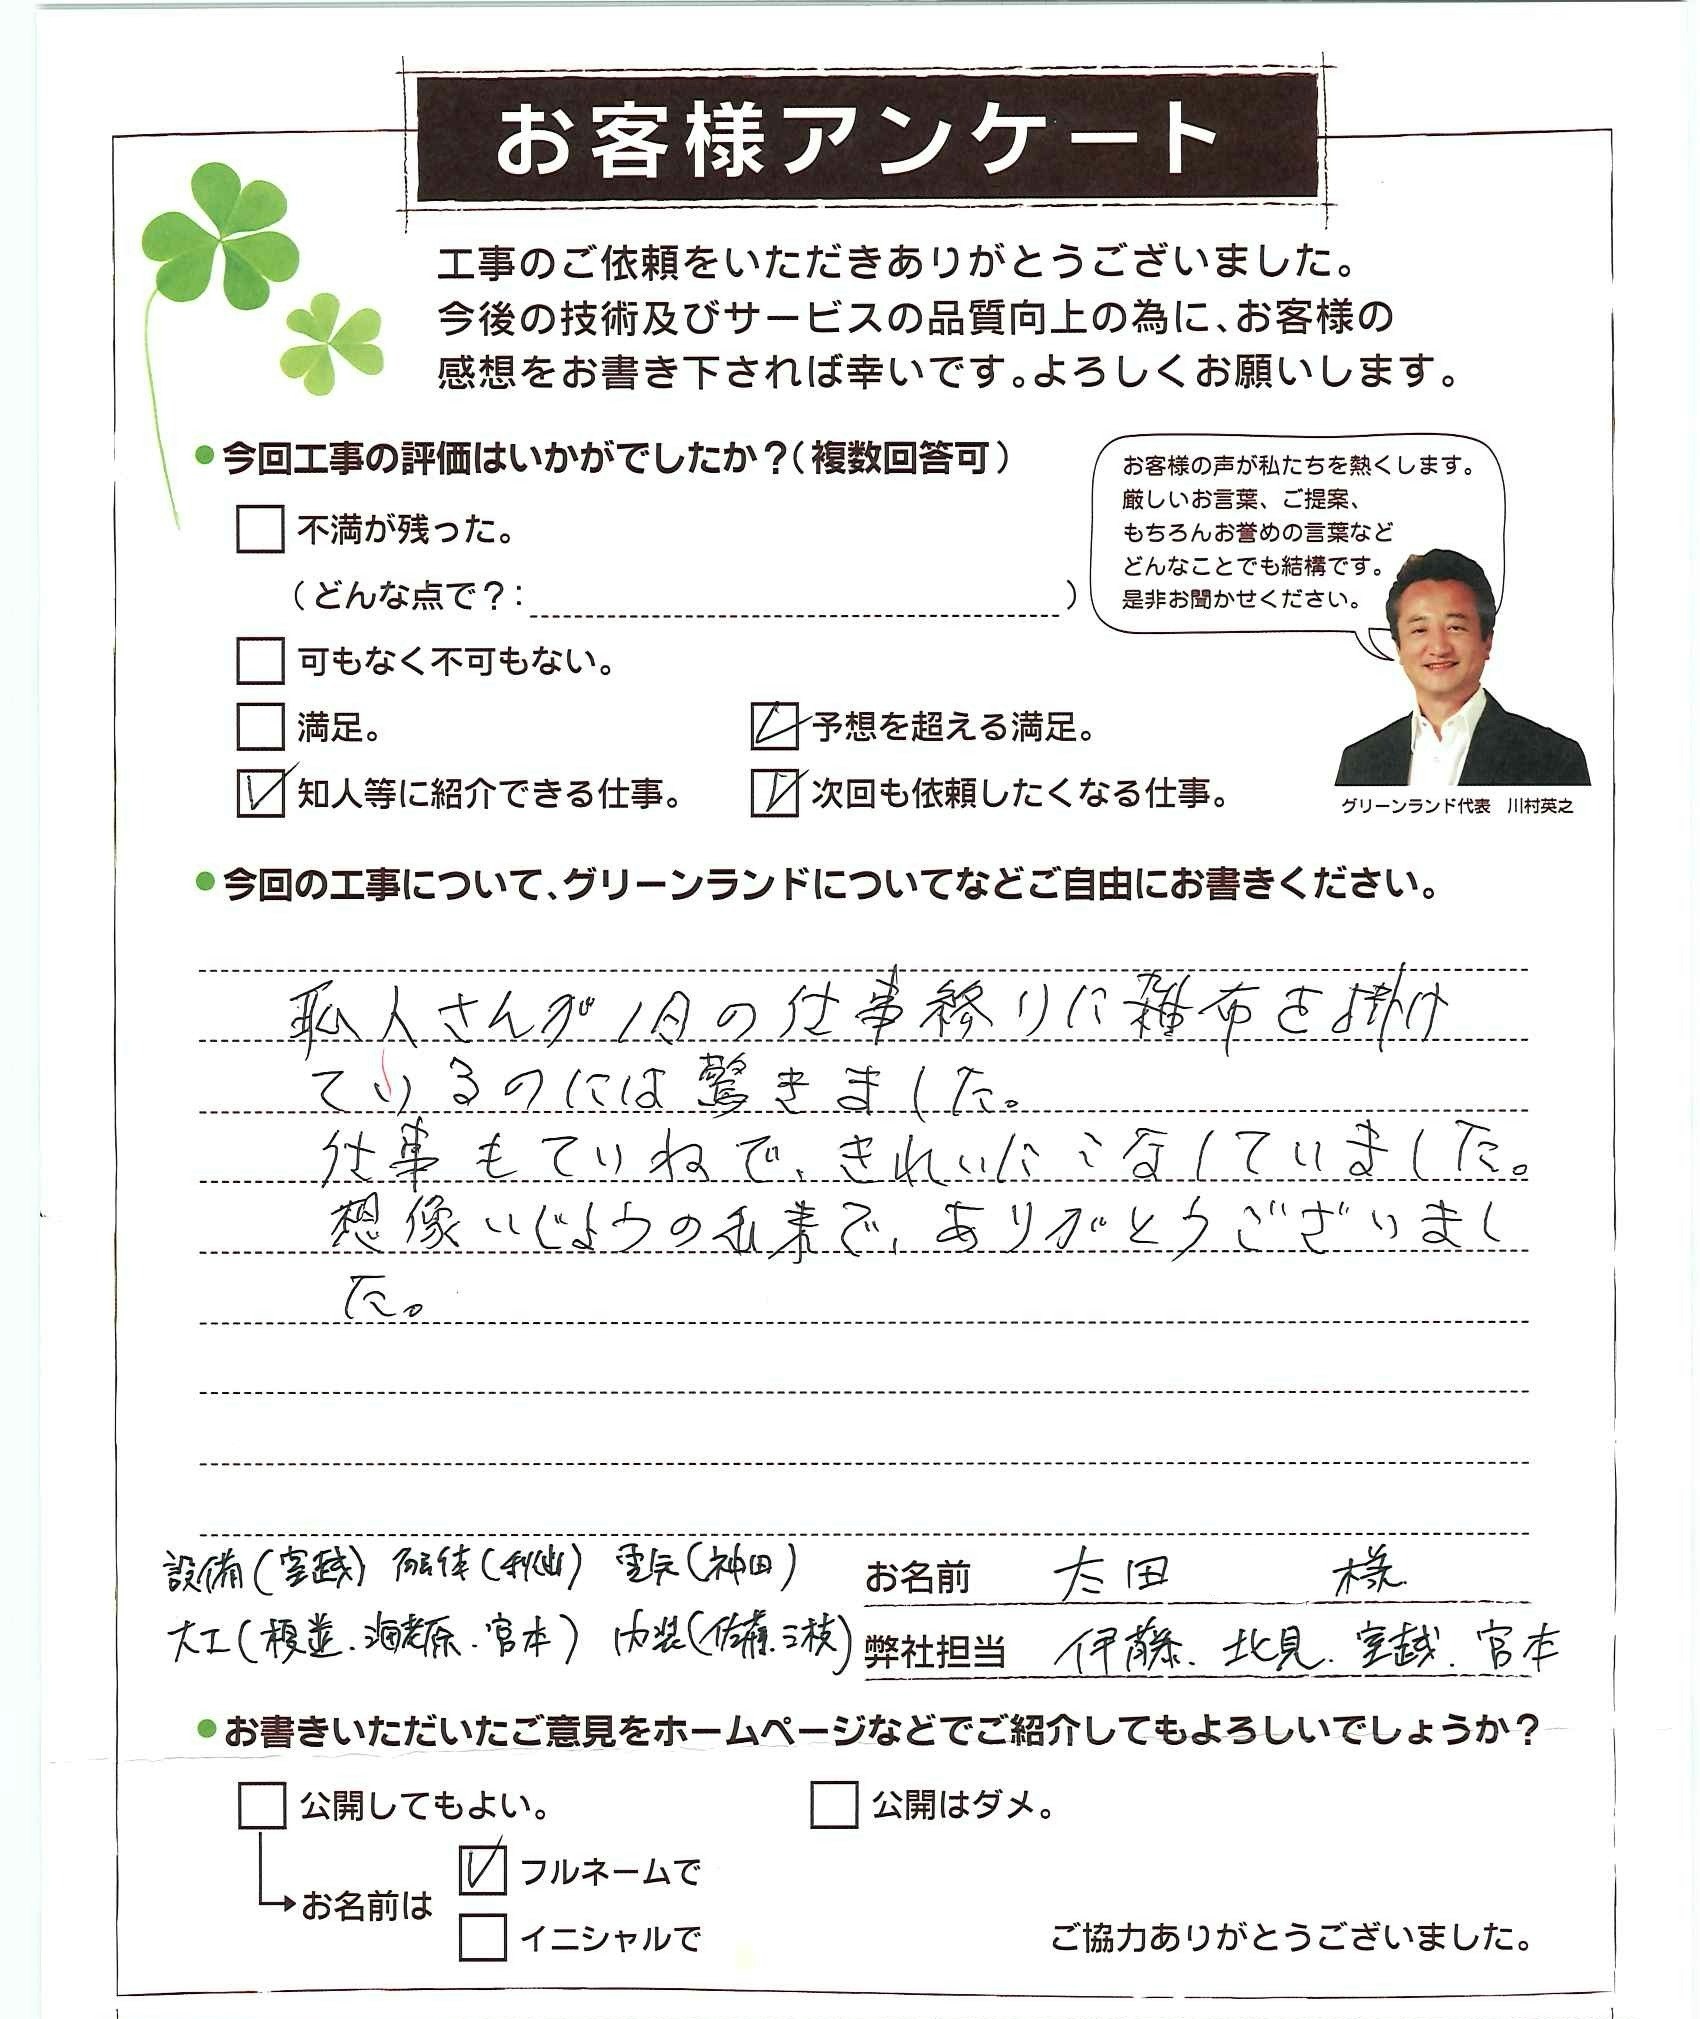 お客様アンケート
工事のご依頼をいただきありがとうございました。
今後の技術及びサービスの品質向上の為に、お客様の
感想をお書き下されば幸いです。よろしくお願いします。
今回工事の評価はいかがでしたか？（複数回答可）
不満が残った。
（どんな点で？：　）
可もなく不可もない。
満足。
予想を超える満足。
知人等に紹介できる仕事。
次回も依頼したくなる仕事。
お客様の声が私たちを熱くします。
厳しいお言葉、ご提案、
もちろんお誉めの言葉など
どんなことでも結構です。
是非お聞かせください。
グリーンランド代表　川村英之
今回の工事について、グリーンランドについてなどご自由にお書きください。
人さんが1日の仕事終りに雑布を掛け
ているのには驚きました。
仕事もていねで、きれいにこなしていました。
想像いじょうの出来で、ありがとうございまし
た。
設備（室越）　解体（　）　電気（神田）
大工（榎並．海老原．宮本）　内装（佐藤．三枝）
お名前　太田　様
弊社担当　伊藤．北見．室越．宮本
お書きいただいたご意見をホームページなどでご紹介してもよろしいでしょうか？
公開してもよい。
公開はダメ。
お名前は
フルネームで
イニシャルで
ご協力ありがとうございました。